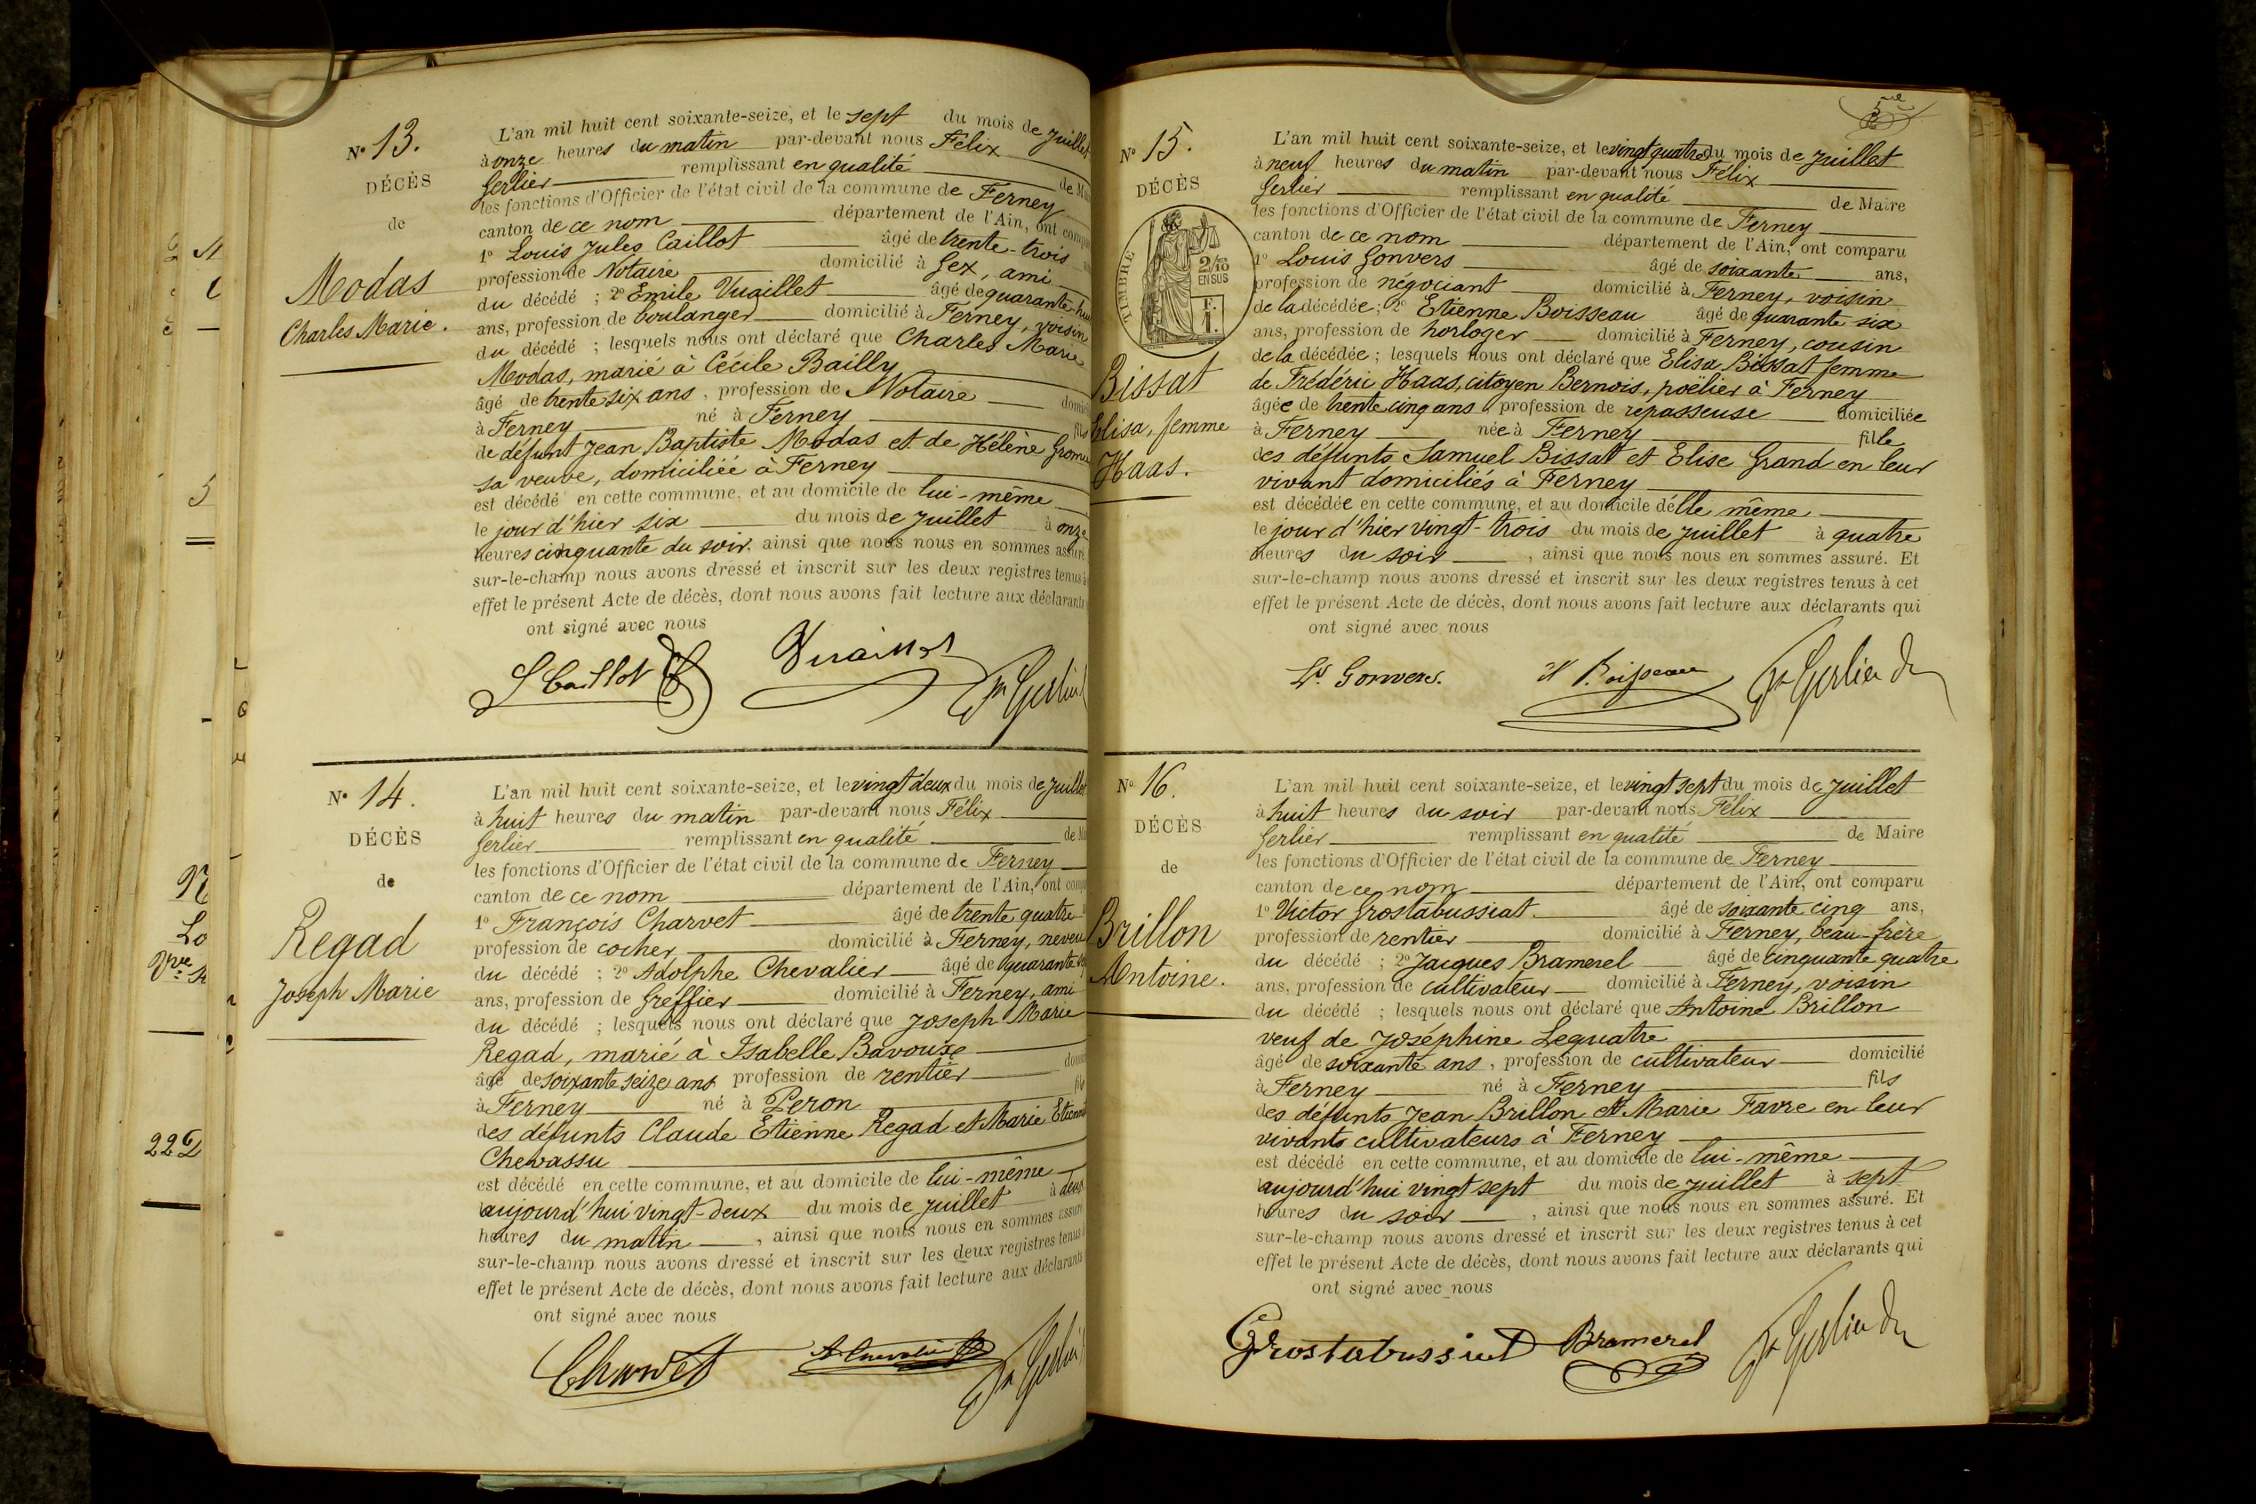 N° 13.
DÉCÈS
de
Modas
Charles Marie.
L'an mil huit cent soixante-seize, et le sept du mois de juillet
à onze heures du matin par-devant nous Félix
Gerlier remplissant en qualité de
les fonctions d'Officier de l'état civil de la commune de Ferney
canton de ce nom département de l'Ain, ont
1° Louis Jules Caillot âgé de trente-trois
profession de Notaire domicilié à Gex, ami
du décédé ; 2° Emile Vuaillet âgé de quarante
ans, profession de boulanger domicilié à Ferney, voisin
du décédé ; lesquels nous ont déclaré que Charles Marie
Modas, marié à Cécile Bailly
âgé de trente six ans, profession de Notaire
à Ferney né à Ferney fils
de défunt Jean Baptiste Modas et de Hélène
sa veuve, domiciliée à Ferney
est décédé en cette commune, et au domicile de lui-même
le jour d'hier six du mois de juillet à onze
heures cinquante du soir, ainsi que nous nous en sommes
sur-le-champ nous avons dressé et inscrit sur les deux registres tenus à
effet le présent Acte de décès, dont nous avons fait lecture aux déclarants
ont signé avec nous
N° 14.
DÉCÈS
de
Regad
Joseph Marie
L'an mil huit cent soixante-seize, et le vingt deux du mois de juillet
à huit heures du matin par-devant nous Félix
Gerlier remplissant en qualité de
les fonctions d'Officier de l'état civil de la commune de Ferney
canton de ce nom département de l'Ain, ont
1° François Charvet âgé de trente quatre
profession de cocher domicilié à Ferney, neveu
du décédé ; 2° Adolphe Chevalier âgé de quarante
ans, profession de Greffier domicilié à Ferney, ami
du décédé ; lesquels nous ont déclaré que Joseph Marie
Regad, marié à Isabelle Bavoux
âgé de soixante seize ans profession de rentier
à Ferney né à Peron fils
des défunts Claude Etienne Regad et Marie
Chevassu
est décédé en cette commune, et au domicile de lui-même
aujourd'hui vingt-deux du mois de juillet à deux
heures du matin, ainsi que nous nous en sommes
sur-le-champ nous avons dressé et inscrit sur les deux registres tenus
effet le présent Acte de décès, dont nous avons fait lecture aux déclarants
ont signé avec nous
Charvet
N° 15.
DÉCÈS
TIMBRE
2/10
EN SUS
F.
1.
Bissat
Elisa, femme
Haas.
L'an mil huit cent soixante-seize, et le vingt quatre du mois de juillet
à neuf heures du matin par-devant nous Félix
Gerlier remplissant en qualité de Maire
les fonctions d'Officier de l'état civil de la commune de Ferney
canton de ce nom département de l'Ain, ont comparu
1° Louis Gonvers âgé de soixante ans,
profession de négociant domicilié à Ferney, voisin
de la décédée ; 2° Etienne Boisseau âgé de quarante six
ans, profession de horloger domicilié à Ferney, cousin
de la décédée ; lesquels nous ont déclaré que Elisa Bissat femme
de Frédéric Haas, citoyen Bernois, poëlier à Ferney
âgée de trente cinq ans, profession de repasseuse domiciliée
à Ferney née à Ferney fille
des défunts Samuel Bissat et Elise Grand en leur
vivant domiciliés à Ferney
est décédée en cette commune, et au domicile d'elle même
le jour d'hier vingt-trois du mois de juillet à quatre
heures du soir, ainsi que nous nous en sommes assuré. Et
sur-le-champ nous avons dressé et inscrit sur les deux registres tenus à cet
effet le présent Acte de décès, dont nous avons fait lecture aux déclarants qui
ont signé avec nous
Ls Gonvers.
N° 16.
DÉCÈS
de
Brillon
Antoine.
L'an mil huit cent soixante-seize, et le vingt sept du mois de juillet
à huit heures du soir par-devant nous Félix
Gerlier remplissant en qualité de Maire
les fonctions d'Officier de l'état civil de la commune de Ferney
canton de ce nom département de l'Ain, ont comparu
1° Victor Grostabussiat âgé de soixante cinq ans,
profession de rentier domicilié à Ferney, beau-frère
du décédé ; 2° Jacques Bramerel âgé de cinquante quatre
ans, profession de cultivateur domicilié à Ferney, voisin
du décédé ; lesquels nous ont déclaré que Antoine Brillon
veuf de Joséphine Lequatre
âgé de soixante ans, profession de cultivateur domicilié
à Ferney né à Ferney fils
des défunts Jean Brillon et Marie Favre en leur
vivants cultivateurs à Ferney
est décédé en cette commune, et au domicile de lui-même
aujourd'hui vingt sept du mois de juillet à sept
heures du soir, ainsi que nous nous en sommes assuré. Et
sur-le-champ nous avons dressé et inscrit sur les deux registres tenus à cet
effet le présent Acte de décès, dont nous avons fait lecture aux déclarants qui
ont signé avec nous
Grostabussiat Bramerel